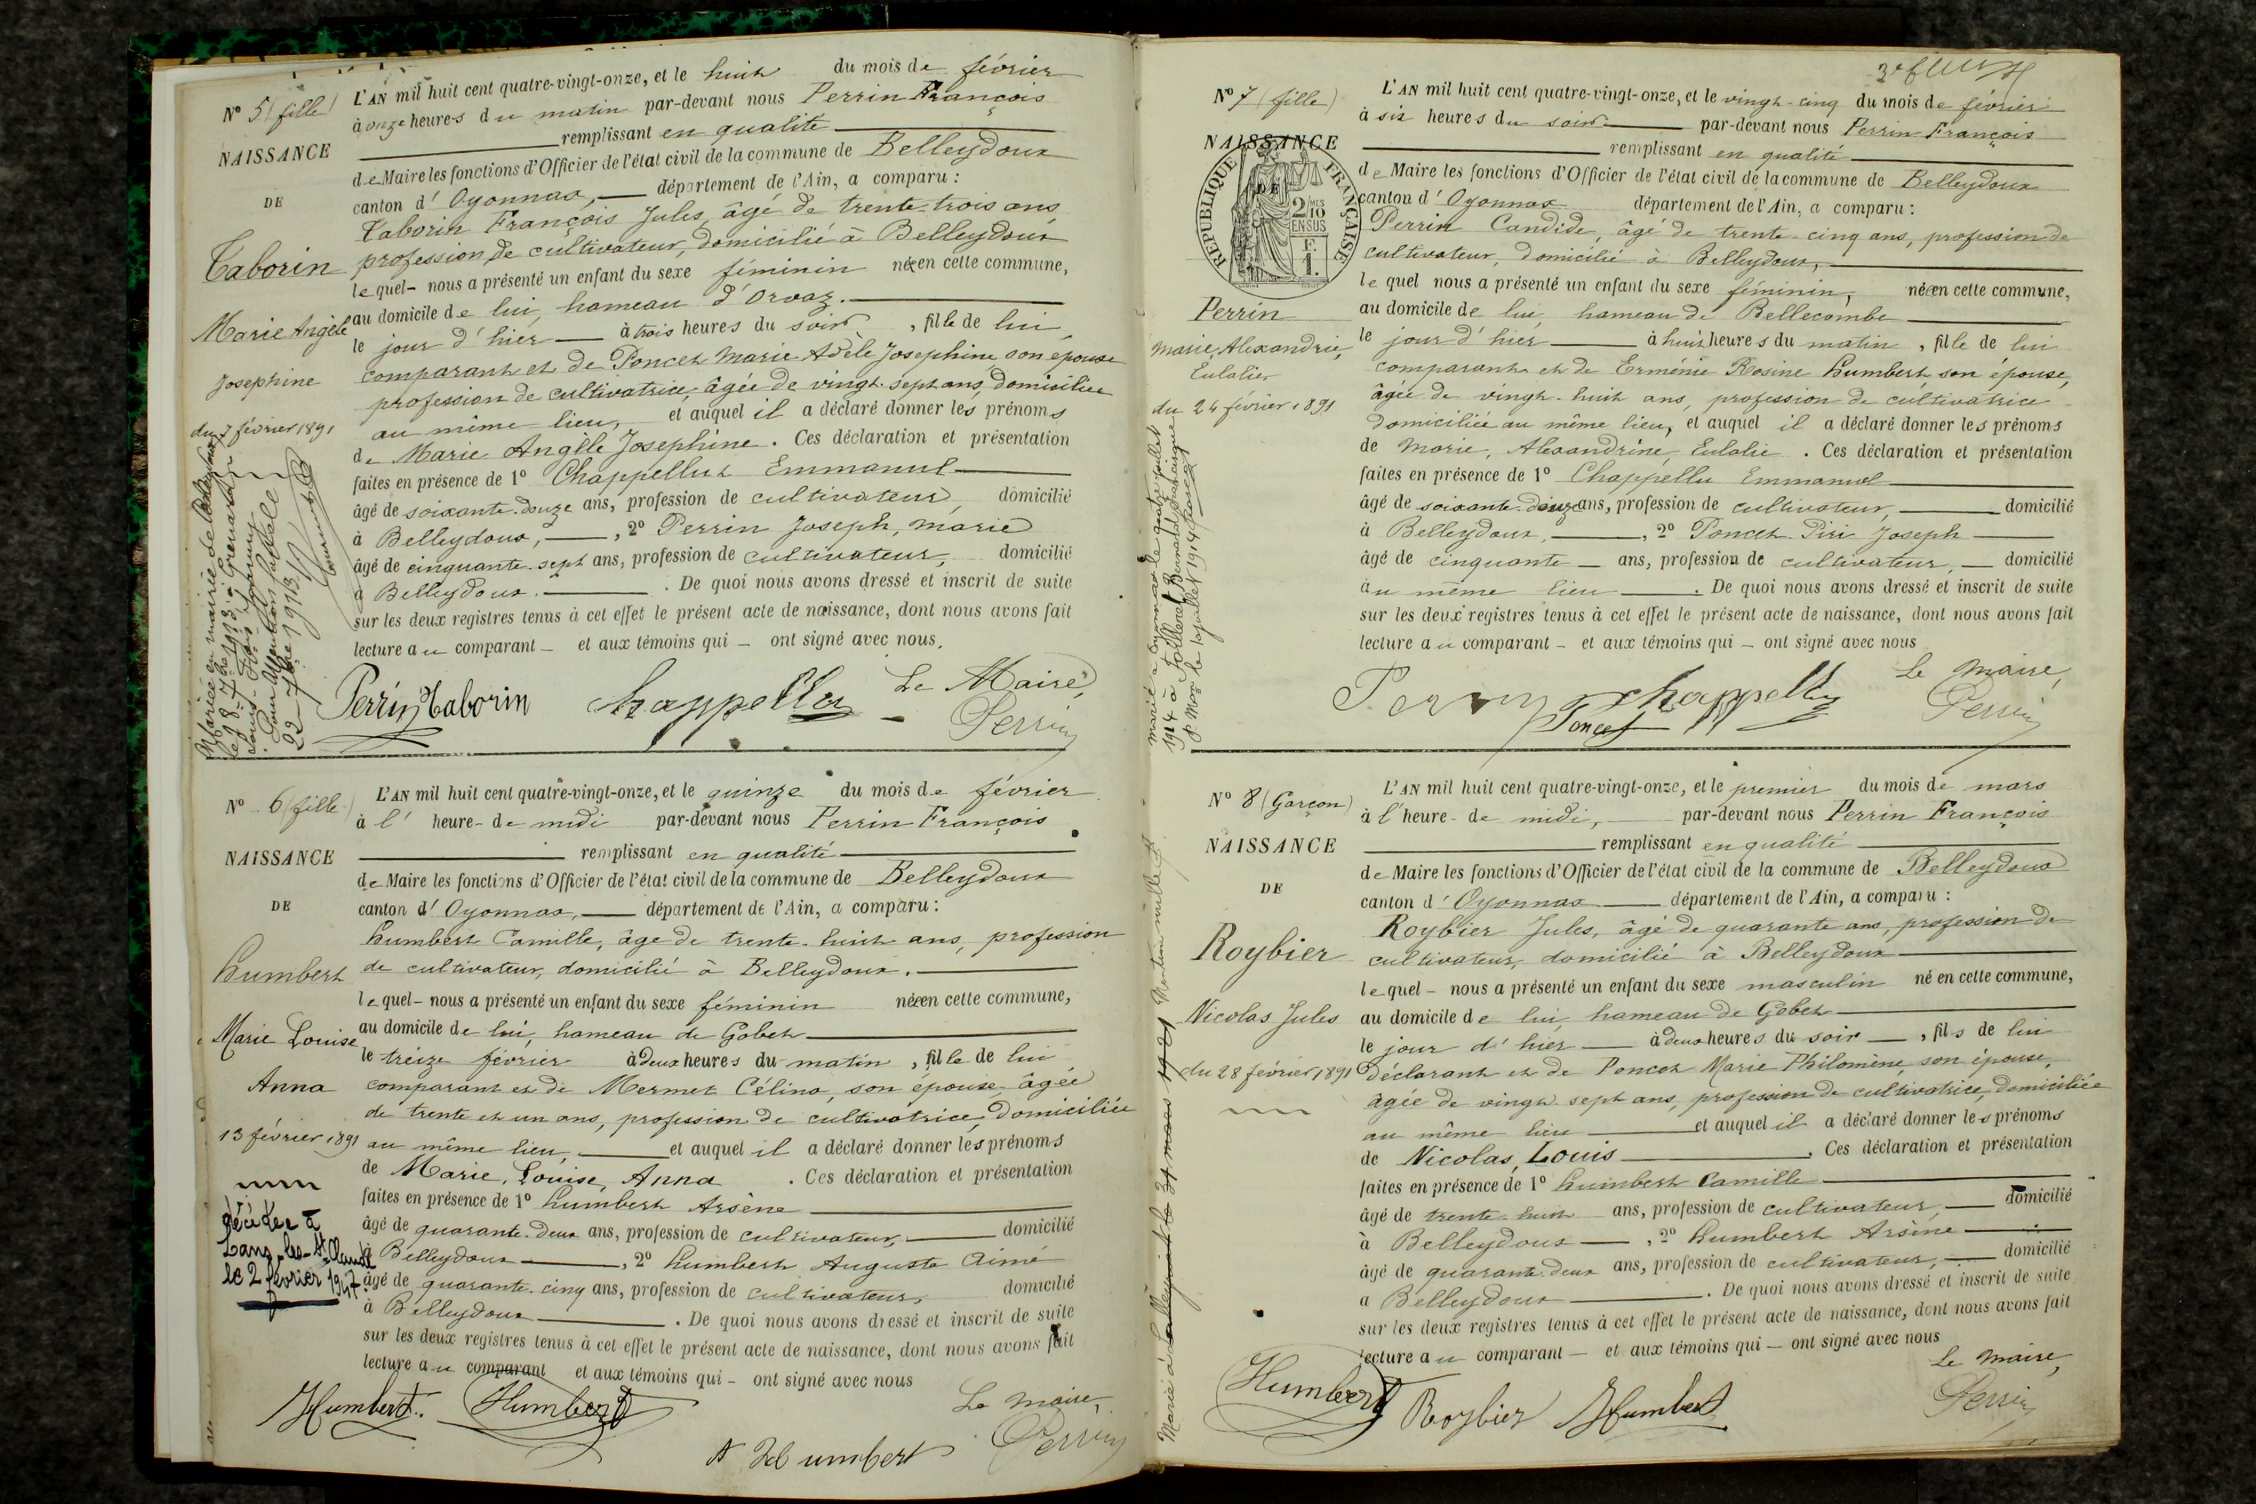 Nº 5 (fille)
NAISSANCE
DE
Taborin
Marie Angèle
Josephine
du 7 février 1891
L'AN mil huit cent quatre-vingt-onze, et le huit du mois de février
à onze heures du matin par-devant nous Perrin François
remplissant en qualité
de Maire les fonctions d'Officier de l'état civil de la commune de Belleydoux
canton d'Oyonnax, département de l'Ain, a comparu :
Taborin François Jules, âgé de trente-trois ans
profession de cultivateur, domicilié à Belleydoux
lequel nous a présenté un enfant du sexe féminin née en cette commune,
au domicile de lui, hameau d'Orvaz.
le jour d'hier à trois heures du soir, fille de lui
comparant et de Poncet Marie Adèle Josephine son épouse
profession de cultivatrice, âgée de vingt-sept ans, domiciliée
au même lieu, et auquel il a déclaré donner les prénoms
de Marie Angèle Josephine. Ces déclaration et présentation
faites en présence de 1º Chappelluz Emmanuel
âgé de soixante-douze ans, profession de cultivateur, domicilié
à Belleydoux, 2º Perrin Joseph, Marie
âgé de cinquante-sept ans, profession de cultivateur, domicilié
à Belleydoux. De quoi nous avons dressé et inscrit de suite
sur les deux registres tenus à cet effet le présent acte de naissance, dont nous avons fait
lecture au comparant et aux témoins qui ont signé avec nous.
Perrin Taborin Chappelluz Le Maire,
Perrin
Nº 6 (fille)
NAISSANCE
DE
Humbert
Marie Louise
Anna
13 février 1891
décédée à
Lans-les-St Claude
le 2 février 1947.
L'AN mil huit cent quatre-vingt-onze, et le quinze du mois de février
à l'heure de midi par-devant nous Perrin François
remplissant en qualité
de Maire les fonctions d'Officier de l'état civil de la commune de Belleydoux
canton d'Oyonnax, département de l'Ain, a comparu :
Humbert Camille, âgé de trente-huit ans, profession
de cultivateur, domicilié à Belleydoux.
lequel nous a présenté un enfant du sexe féminin née en cette commune,
au domicile de lui, hameau de Gobet
le treize février à deux heures du matin, fille de lui
comparant et de Mermet Célina, son épouse, âgée
de trente et un ans, profession de cultivatrice, domiciliée
au même lieu, et auquel il a déclaré donner les prénoms
de Marie, Louise, Anna. Ces déclaration et présentation
faites en présence de 1º Humbert Arsène
âgé de quarante-deux ans, profession de cultivateur, domicilié
à Belleydoux, 2º Humbert Auguste Aimé
âgé de quarante-cinq ans, profession de cultivateur, domicilié
à Belleydoux. De quoi nous avons dressé et inscrit de suite
sur les deux registres tenus à cet effet le présent acte de naissance, dont nous avons fait
lecture au comparant et aux témoins qui ont signé avec nous
Humbert. Humbert Le Maire,
A Humbert Perrin
Nº 7 (fille)
NAISSANCE
DE
RÉPUBLIQUE FRANÇAISE
2/10 EN SUS
F. 1.
Perrin
Marie, Alexandrine,
Eulalie
du 24 février 1891
L'AN mil huit cent quatre-vingt-onze, et le vingt-cinq du mois de février
à six heures du soir par-devant nous Perrin François
remplissant en qualité
de Maire les fonctions d'Officier de l'état civil de la commune de Belleydoux
canton d'Oyonnax département de l'Ain, a comparu :
Perrin Candide, âgé de trente-cinq ans, profession de
cultivateur, domicilié à Belleydoux,
lequel nous a présenté un enfant du sexe féminin, née en cette commune,
au domicile de lui, hameau de Bellecombe
le jour d'hier à huit heures du matin, fille de lui
comparant et de Erménie Rosine Humbert, son épouse,
âgée de vingt-huit ans, profession de cultivatrice
domiciliée au même lieu, et auquel il a déclaré donner les prénoms
de Marie, Alexandrine, Eulalie. Ces déclaration et présentation
faites en présence de 1º Chappellu Emmanuel
âgé de soixante-douze ans, profession de cultivateur, domicilié
à Belleydoux, 2º Poncet Piri Joseph
âgé de cinquante ans, profession de cultivateur, domicilié
au même lieu. De quoi nous avons dressé et inscrit de suite
sur les deux registres tenus à cet effet le présent acte de naissance, dont nous avons fait
lecture au comparant et aux témoins qui ont signé avec nous
Perrin Chappelluz Le Maire,
Poncet Perrin
Nº 8 (Garçon)
NAISSANCE
DE
Roybier
Nicolas Jules
du 28 février 1891
L'AN mil huit cent quatre-vingt-onze, et le premier du mois de mars
à l'heure de midi, par-devant nous Perrin François
remplissant en qualité
de Maire les fonctions d'Officier de l'état civil de la commune de Belleydoux
canton d'Oyonnax département de l'Ain, a comparu :
Roybier Jules, âgé de quarante ans, profession de
cultivateur, domicilié à Belleydoux
lequel nous a présenté un enfant du sexe masculin né en cette commune,
au domicile de lui, hameau de Gobet
le jour d'hier à deux heures du soir, fils de lui
déclarant et de Poncet Marie Philomène, son épouse,
âgée de vingt-sept ans, profession de cultivatrice, domiciliée
au même lieu et auquel il a déclaré donner les prénoms
de Nicolas, Louis. Ces déclaration et présentation
faites en présence de 1º Humbert Camille
âgé de trente-huit ans, profession de cultivateur, domicilié
à Belleydoux, 2º Humbert Arsène
âgé de quarante-deux ans, profession de cultivateur, domicilié
à Belleydoux. De quoi nous avons dressé et inscrit de suite
sur les deux registres tenus à cet effet le présent acte de naissance, dont nous avons fait
lecture au comparant et aux témoins qui ont signé avec nous
Humbert Roybier Humbert Le Maire,
Perrin